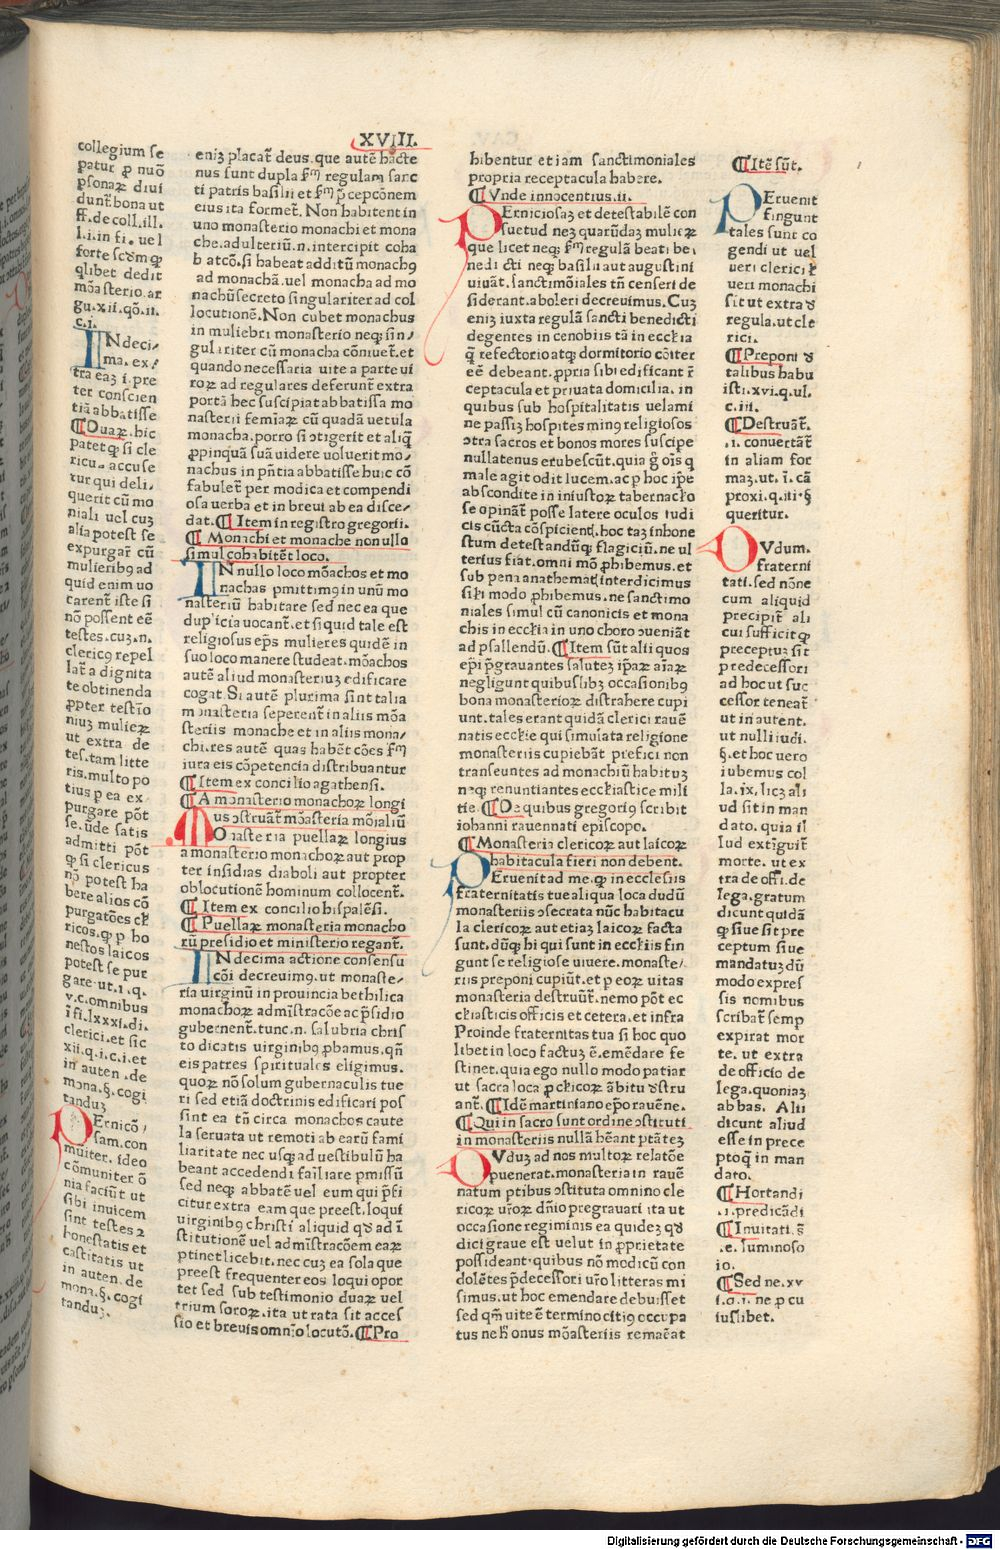 XVIII.
collegium se
patur ꝑ nuõ
ꝑsonaꝝ diui
dunt̃ bona ut
ff. de coll. ill.
l. i. in fi. uel
forte scðm ꝙ
qlibet dedit
mõasterio. ar
gu. xii. qõ. ii.
c. i.
INdeci
ma. ex/
tra eaȝ i. pre
ter conscien
tiã abbatisse
¶Duaꝝ. hic
patet ꝙ si cle
ricu. accuse
tur qui deli,
querit cũ mo
niali uel cuȝ
alia potest se
expurgar̃ cũ
mulierib9 ad
quid enim uo
carent̃ iste si
nõ possent eẽ
testes. cuȝ. n.
cleric9 repel
lat̃ a dignita
te obtinenda
ꝓpter testĩo
niuȝ mulieꝝ
ut extra de
tes. tam litte
ris. multo po
tius p ea ex
purgare põt
se. ũde satis
admitti põt
ꝙ si clericus
nõ potest ha
bere alios cõ
purgatões cl̃
ricos. ꝙ p ho
nestos laicos
potest se pur
gare. ut. i. q.
v. c. omnibus
ĩ fi. lxxxi. di.
clerici. et sic
xii. q. i. c. i. et
in auten. de
mona. §. cogi
tanduȝ
PErnicõ/
sam. con
muiter. ideo
cõmuniter õ
nia faciũt ut
sibi inuicem
sint testes 2
honestatis et
castitatis ut
in auten. de
mona. §. cogi
tanduȝ.
eniȝ placat̃ deus. que autẽ hacte
nus sunt dupla ẜm regulam sanc
ti patris basilii et ẜm p̃cepcõnem
eius ita formet̃. Non habitent in
uno monasterio monachi et mona
che. adulteriũ. n. intercipit coha
b atcõ. si habeat additũ monach9
ad monachã. uel monacha ad mo
nachũ secreto singulariter ad col
locutionẽ. Non cubet monachus
in muliebri monasterio neqȝ sin/
gulariter cũ monacha cõniuet̃. et
quando necessaria uite a parte ui
roꝝ ad regulares deferunt̃ extra
portã hec suscipiat abbatissa mo
nasterii femiaꝝ cũ quadã uetula
monacha. porro si ↄtigerit et aliq̃
ꝓpinquã suã uidere uoluerit mo/
nachus in pñtia abbatisse huic cõ
fabulet̃ per modica et compendi
osa uerba et in breui ab ea disce/
dat. ¶Item in registro gregorii.
¶Monachi et monache non ullo
simul cohabitẽt loco.
IN nullo loco mõachos et mo
nachas pmittim9 in unũ mo
nasteriũ habitare sed nec ea que
duplicia uocant̃. et si quid tale est
religiosus ep̃s mulieres quidẽ in
suo loco manere studeat. mõachos
autẽ aliud monasteriuȝ edificare
cogat. Si autẽ plurima sint talia
monasteria seperent̃ in aliis mõa
steriis monache et in aliis mona/
chi. res autẽ quas habẽt cões ẜm
iura eis cõpetencia distribuantur
¶Item ex concilio agathensi.
¶A monasterio monachoꝝ longi
us ↄstruãt̃ mõasteria mõialiũ
MOnasteria puellaꝝ longius
a monasterio monachoꝝ aut prop
ter insidias diaboli aut propter
oblocutionẽ hominum collocent̃.
¶Item ex concilio hispalẽsi.
¶Puellaꝝ monasteria monacho
rũ presidio et ministerio regant̃.
INdecima actione consensu
cõi decreuim9. ut monaste/
ria uirginũ in prouincia bethilica
monachoꝝ admĩstracõe ac p̃sidio
gubernent̃. tunc. n. salubria chris
to dicatis uirginib9 ꝓbamus. qñ
eis patres spirituales eligimus.
quoꝝ nõ solum gubernaculis tue
ri sed etiã doctrinis edificari pos
sint ea tñ circa monachos caute
la seruata ut remoti ab earũ fami
liaritate nec usqȝ ad uestibulũ ha
beant accedendi failiare pmissũ
sed neqȝ abbatẽ uel eum qui p̃fi
citur extra eam que preest. loqui
uirginib9 christi aliquid qð ad ĩ
stitutionẽ uel admĩstracõem eaꝝ
ptinet licebit. nec cuȝ ea sola que
preest frequenter eos loqui opor
tet sed sub testimonio duaꝝ uel
trium soroꝝ. ita ut rata sit acces
sio et breuis omnio locutõ. ¶Pro
hibentur etiam sanctimoniales
propria receptacula habere.
¶Vnde innocentius. ii.
PErniciosaȝ et detestabilẽ con
suetud neȝ quarũdaȝ mulieꝝ
que licet neqȝ ẜm regulã beati be,
nedicti neqȝ basilii aut augustini
uiuãt. sanctimõiales tñ censeri de
siderant. aboleri decreuimus. Cuȝ
eniȝ iuxta regulã sancti benedicti
degentes in cenobiis tã in ecclia
q̃ refectorio atqȝ dormitorio cõiter
eẽ debeant. ꝓpria sibi edificant r̃
ceptacula et priuata domicilia. in
quibus sub hospitalitatis uelami
ne passiȝ hospites min9 religiosos
ↄtra sacros et bonos mores suscipe
nullatenus erubescũt. quia g̃ oĩs q
male agit odit lucem. ac p hoc ip̃e
abscondite in iniustoꝝ tabernaclo
se opinant̃ posse latere oculos iudi
cis cũcta cõspicient̃. hoc taȝ inhone
stum detestandũqȝ flagiciũ. ne ul
terius fiat. omni mõ ꝓhibemus. et
sub pena anathemat̃ interdicimus
sili modo ꝓhibemus. ne sanctimo
niales simul cũ canonicis et mona
chis in ecclia in uno choro ↄueniãt
ad psallendũ. ¶Item sũt alii quos
ep̃i p̃grauantes salutez ip̃aꝝ aĩaꝝ
negligunt quibuslibȝ occasionib9
bona monasterioꝝ distrahere cupi
unt. tales erant quidã clerici rauẽ
natis ecclie qui simulata religione
monasteriis cupiebãt prefici non
transeuntes ad monachiũ habituȝ
neqȝ renuntiantes ecclesiastice mili
tie. ¶De quibus gregori9 scribit
iohanni rauennati episcopo.
¶Monasteria clericoꝝ aut laicoꝝ
habitacula fieri non debent.
PEruenit ad me. ꝙ in ecclesiis
fraternitatis tue aliqua loca dudũ
monasteriis ↄsecrata nũc habitacu
la clericoꝝ aut etiaȝ laicoꝝ facta
sunt. dũqȝ hi qui sunt in eccliis fin
gunt se religiose uiuere. monaste/
riis preponi cupiũt. et p eoꝝ uitas
monasteria destruũt. nemo põt ec
clesiasticis officiis et cetera. et infra
Proinde fraternitas tua si hoc quo
libet in loco factuȝ ẽ. emẽdare fe
stinet. quia ego nullo modo patiar
ut sacra loca ꝑ clicoꝝ ãbitũ ðstru
ant̃. ¶Idẽ martiniano ep̃o rauẽne.
¶Qui in sacro sunt ordine ↄstituti
in monasteriis nullã hẽant ptãteȝ
DVduȝ ad nos multoꝝ relatõe
puenerat. monasteria in rauẽ
natum ptibus ↄstituta omnino cle
ricoꝝ ur̃oꝝ dñio pregrauari ita ut
occasione regiminis ea quideȝ qð
dici graue est uelut in ꝓprietate
possideant. quibus nõ modicũ con
dolẽtes p̃decessori ur̃o litteras mi
simus. ut hoc emendare debuisset
sed qm̃ uite ẽ termino citi9 occupa
tus ne h̃ onus mõasteriis remaẽat
¶Itẽ sũt.
PEruenit
fingunt
tales sunt co
gendi ut uel
ueri clerici ł
ueri monachi
sit ut extra ð
regula. ut cle
rici.
¶Preponi ð
talibus habu
isti. xvi. q. ul.
c. iii.
¶Destruãt̃.
.i. conuertãt̃
in aliam for
maȝ. ut. ĩ. cã
proxi. q. iti. §
queritur.
DVdum.
fraterni
tati. sed nõne
cum aliquid
precipit̃ ali
cui sufficit ꝙ
preceptuȝ sit
predecessori
ad hoc ut suc
cessor teneat̃
ut in autent.
ut nulli iudi.
§. et hoc uero
iubemus col
la. ix. licȝ ali
ud sit in man
dato. quia il
lud extĩguit̃
morte. ut ex
tra de offi. de
lega. gratum
dicunt quidã
ꝙ siue sit pre
ceptum siue
mandatuȝ dũ
modo expres
sis nomibus
scribat̃ semp
expirat mor
te. ut extra
de officio de
lega. quoniaȝ
abbas. Alii
dicunt aliud
esse in prece
pto q̃ in man
dato.
¶Hortandi
.i. predicãdi
¶Inuitati. s̃
.e. luminoso
io.
¶Sed ne. xv
i. q. i. ne p cu
iuslibet.
Digitalisierung gefördert durch die Deutsche Forschungsgemeinschaft - DFG